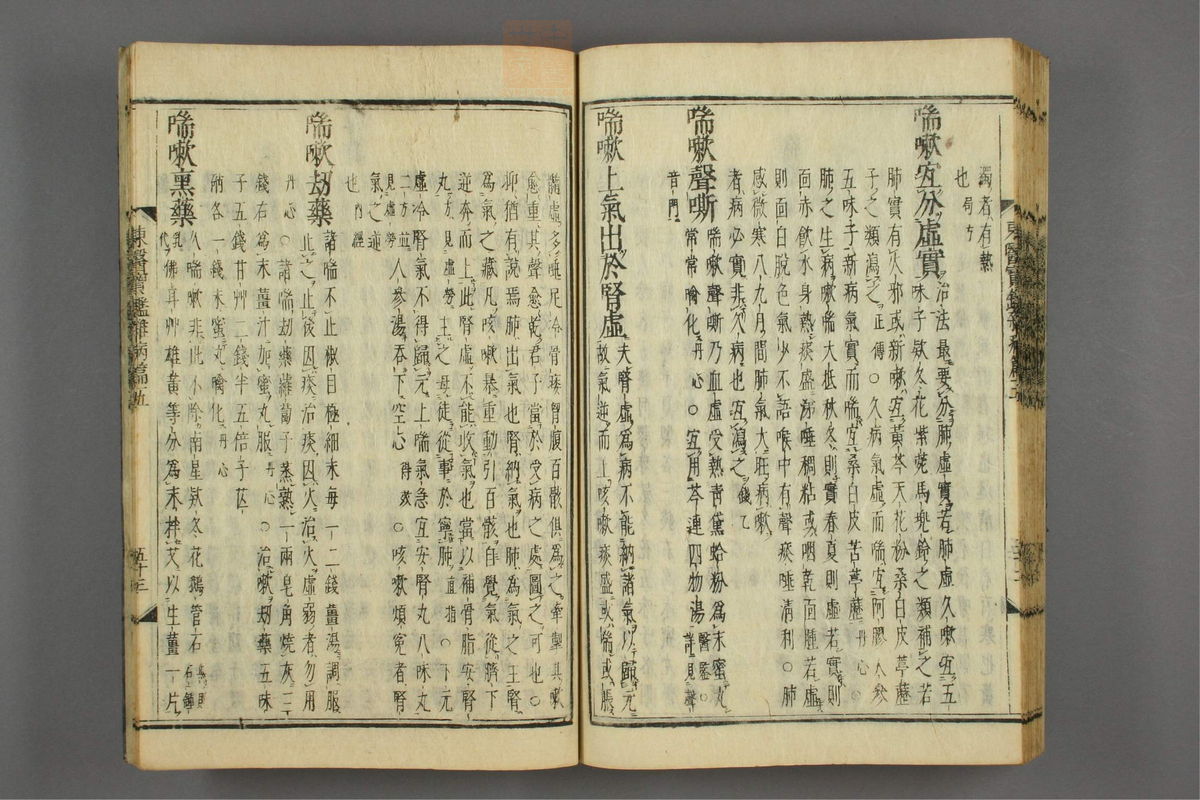 濁者有熱
也局方
喘嗽宜分虛實治法最要分肺虛實若肺虛久嗽宜五
味子款久花紫菀馬兜鈴之類補之若
肺實有火邪或新嗽宜黃芩天花粉桑白皮葶藶
子之類瀉之正傳○久病氣虛而喘宜阿膠人參
五味子新病氣實而喘宜桑白皮苦葶藶丹心○
肺之生病嗽喘大抵秋冬則實春夏則虛若實則
面赤飲水身熱痰盛涕唾稠粘或咽乾面腫若虛
則面白脫色氣少不語喉中有聲痰唾清利○肺
感微寒八九月間肺氣大旺病嗽
者病必實非久病也宜瀉之錢乙
喘嗽聲嘶喘嗽聲嘶乃血虛受熱靑黛蛤粉爲末蜜丸
常常噙化丹心○宜用芩連四物湯醫鑑○詳見聲
音門
喘嗽上氣出於腎虛夫腎虛爲病不能納諸氣以歸元
故氣逆而上咳嗽痰盛或喘或脹
髓虛多唾足冷骨痿胷腹百骸俱爲之牽掣其嗽
愈重其聲愈乾君子當於受病之處圖之可也○
抑猶有說焉肺出氣也腎納氣也肺爲氣之主腎
爲氣之藏凡咳嗽暴重動引百骸自覺氣從臍下
逆奔而上此腎虛不能收氣也當以補骨脂安腎
丸方見虛勞主之毋徒從事於寧肺直指○下元
虛冷腎氣不得歸元上喘氣急宜安腎丸八味丸
二方並見虛勞人參湯吞下空心得效○咳嗽煩冤者腎
氣之逆
也內經
喘嗽劫藥諸喘不止椒目極細末每一二錢薑湯調服
止之止後因痰治痰因火治火虛弱者勿用
丹心○諸喘劫藥蘿葍子蒸熟一兩皂角燒灰三
錢右爲末薑汁加蜜丸服丹心○治嗽劫藥五味
子五錢甘艸二錢半五倍子芒
硝各一錢末蜜丸噙化丹心
喘嗽熏藥久喘嗽非此不除南星款冬花鵝管石
佛耳艸雄黃等分爲末拌艾以生薑一片
東醫寶鑑雜病篇五
五十三